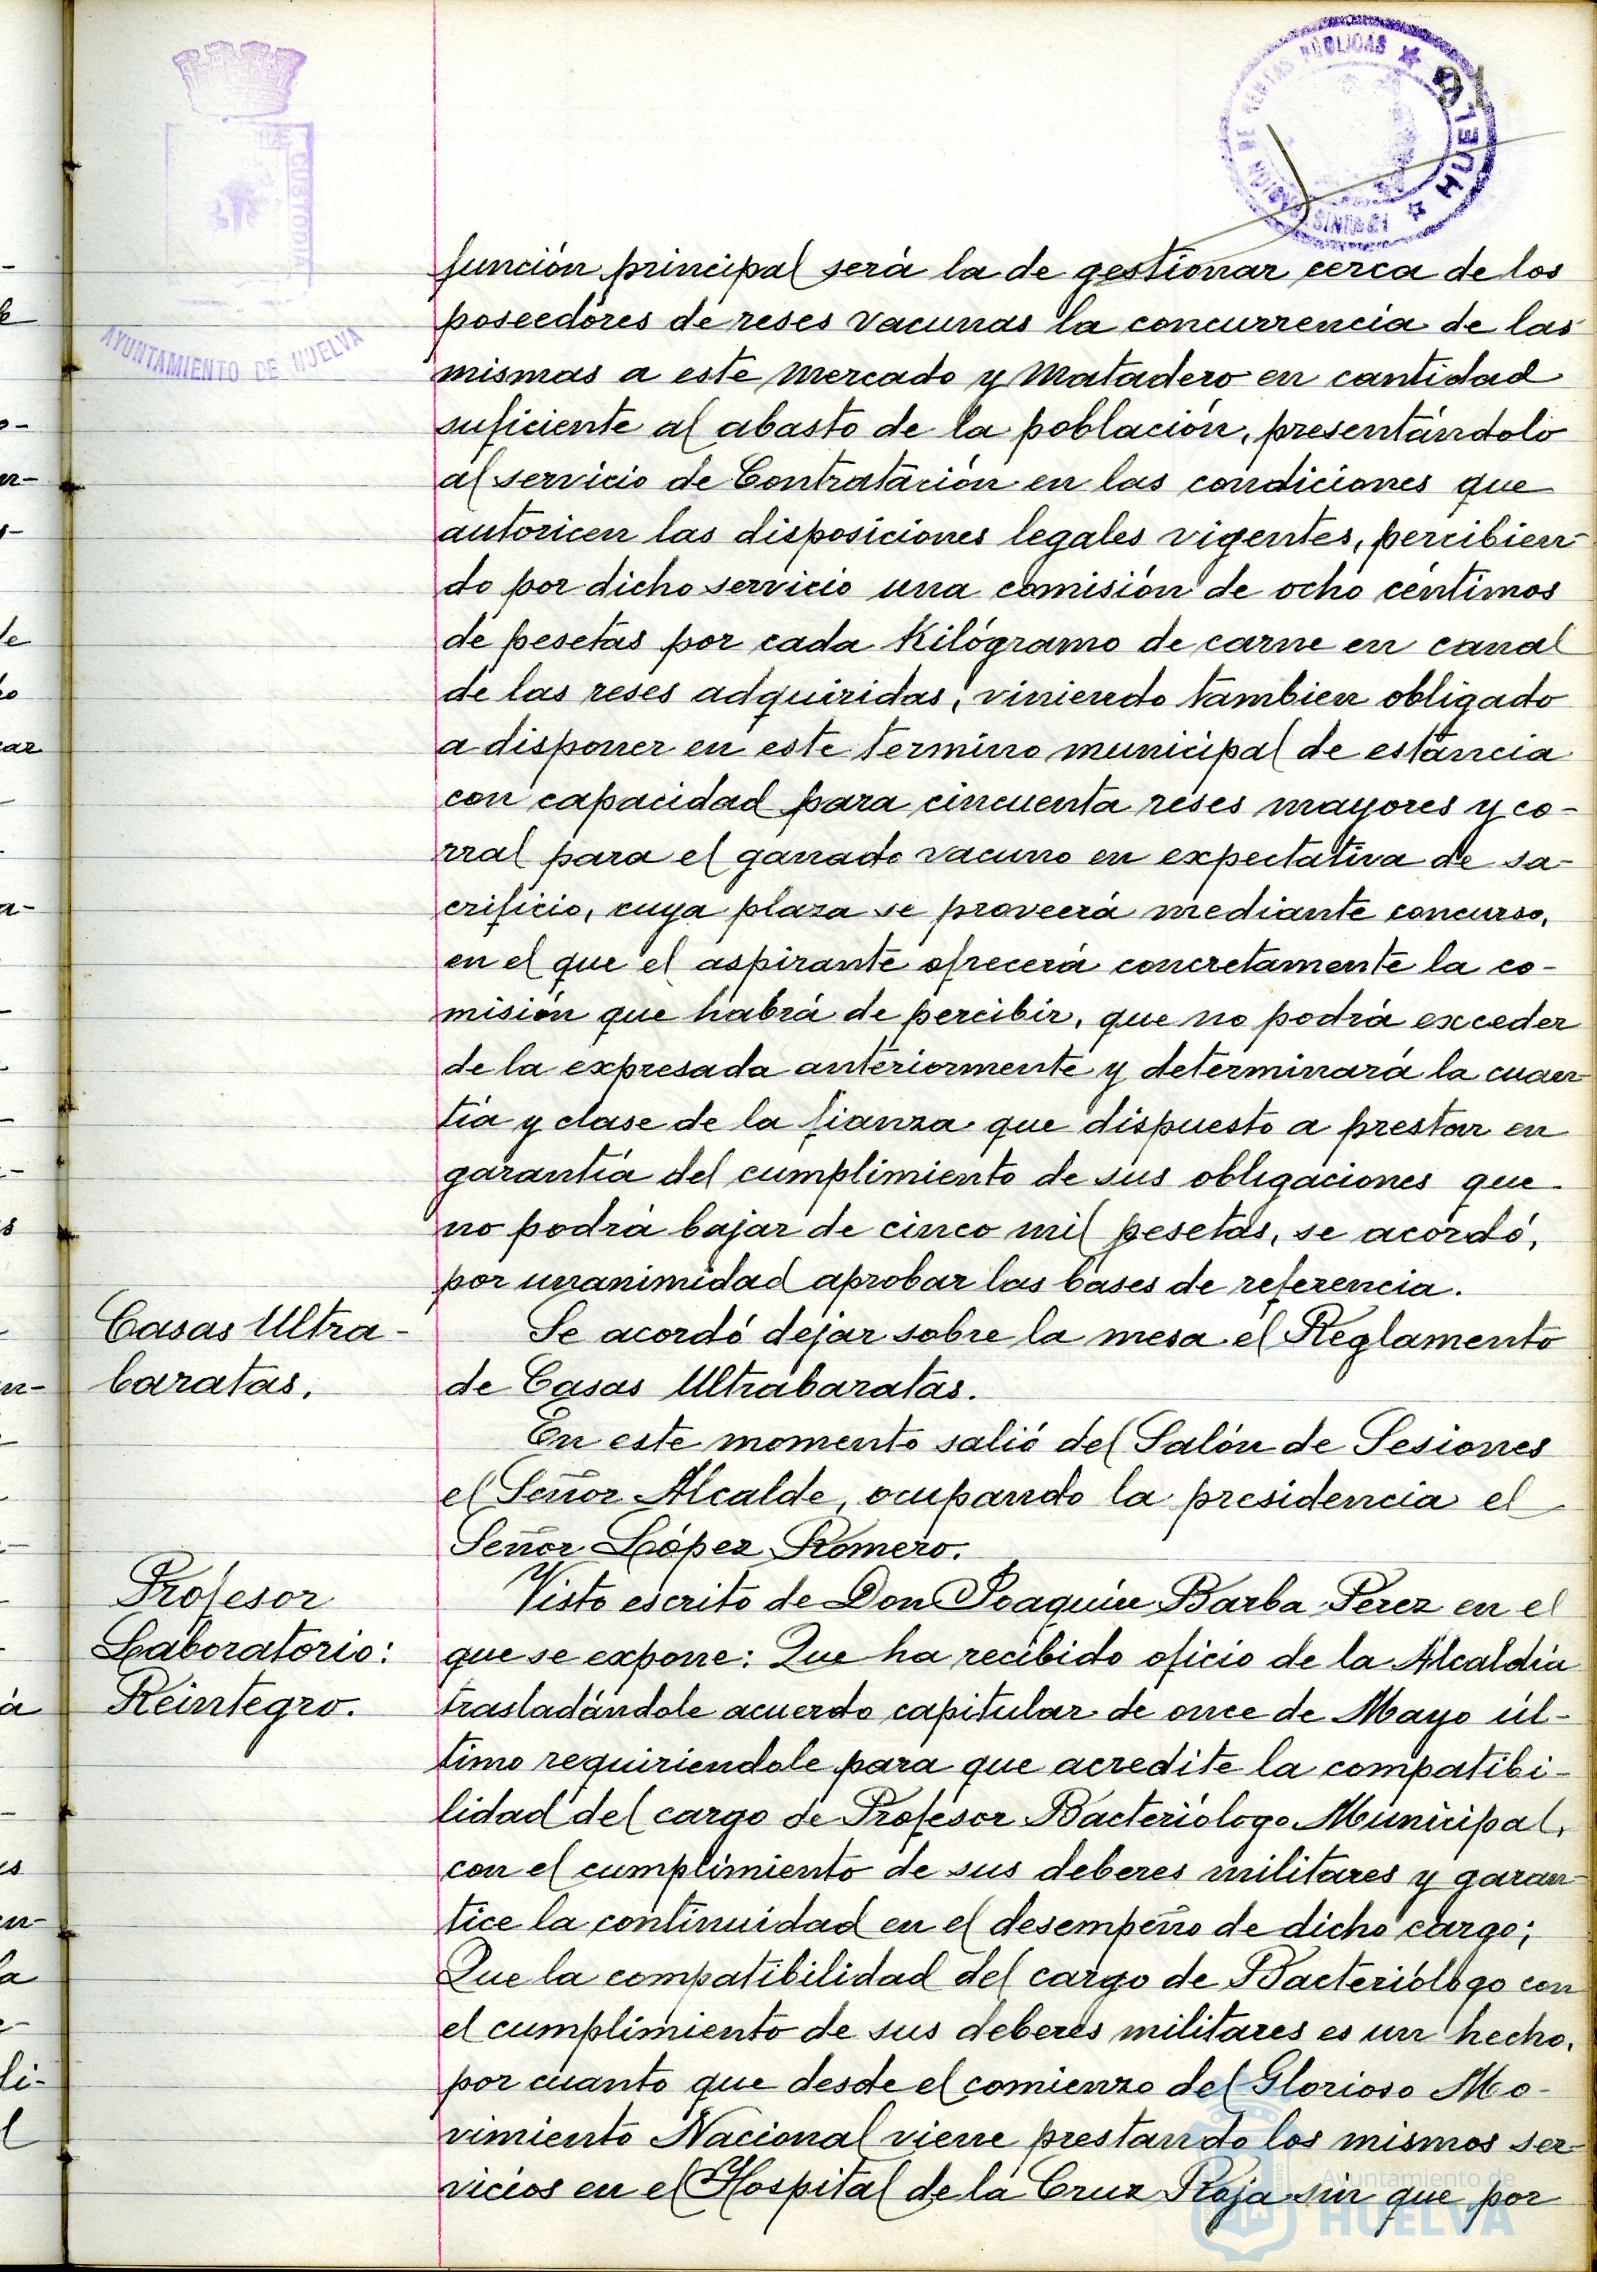 91
HUELVA
PORTAE CUSTODIA
AYUNTAMIENTO DE HUELVA
función principal será la de gestionar cerca de los
poseedores de reses vacunas la concurrencia de las
mismas a este Mercado y Matadero en cantidad
suficiente al abasto de la población, presentándolo
al servicio de Contratación en las condiciones que
autoricen las disposiciones legales vigentes, percibien-
do por dicho servicio una comisión de ocho céntimos
de pesetas por cada Kilógramo de carne en canal
de las reses adquiridas, viniendo tambien obligado
a disponer en este término municipal de estancia
con capacidad para cincuenta reses mayores y co-
rral para el ganado vacuno en expectativa de sa-
crificio, cuya plaza se proveerá mediante concurso,
en el que el aspirante ofrecerá concretamente la co-
misión que habrá de percibir, que no podrá exceder
de la expresada anteriormente y determinará la cuan-
tía y clase de la fianza que dispuesto a prestar en
garantía del cumplimiento de sus obligaciones que
no podrá bajar de cinco mil pesetas, se acordó,
por unanimidad aprobar las bases de referencia.
Casas Ultra-
baratas.
Se acordó dejar sobre la mesa el Reglamento
de Casas Ultrabaratas.
En este momento salió del Salón de Sesiones
el Señor Alcalde, ocupando la presidencia el
Señor López Romero.
Profesor
Laboratorio:
Reintegro.
Visto escrito de Don Joaquín Barba Pérez en el
que se expone: Que ha recibido oficio de la Alcaldía
trasladándole acuerdo capitular de once de Mayo úl-
timo requiriendole para que acredite la compatibi-
lidad del cargo de Profesor Bacteriólogo Municipal,
con el cumplimiento de sus deberes militares y garan-
tice la continuidad en el desempeño de dicho cargo;
Que la compatibilidad del cargo de Bacteriólogo con
el cumplimiento de sus deberes militares es un hecho,
por cuanto que desde el comienzo del Glorioso Mo-
vimiento Nacional viene prestando los mismos ser-
vicios en el Hospital de la Cruz Roja sin que por
Ayuntamiento de
HUELVA